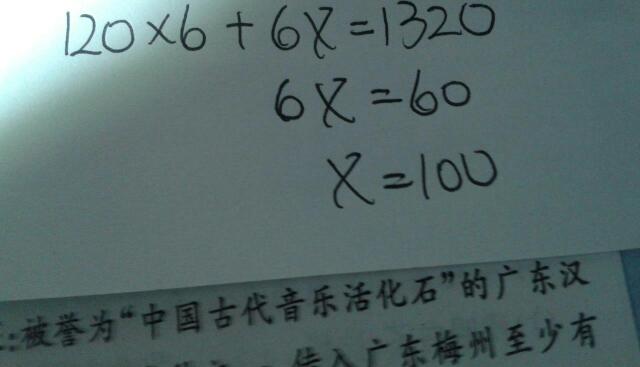 120×6+6X=1320
6X=60
X=100
:被誉为“中国古代音乐活化石”的广东汉
传入广东梅州至少有